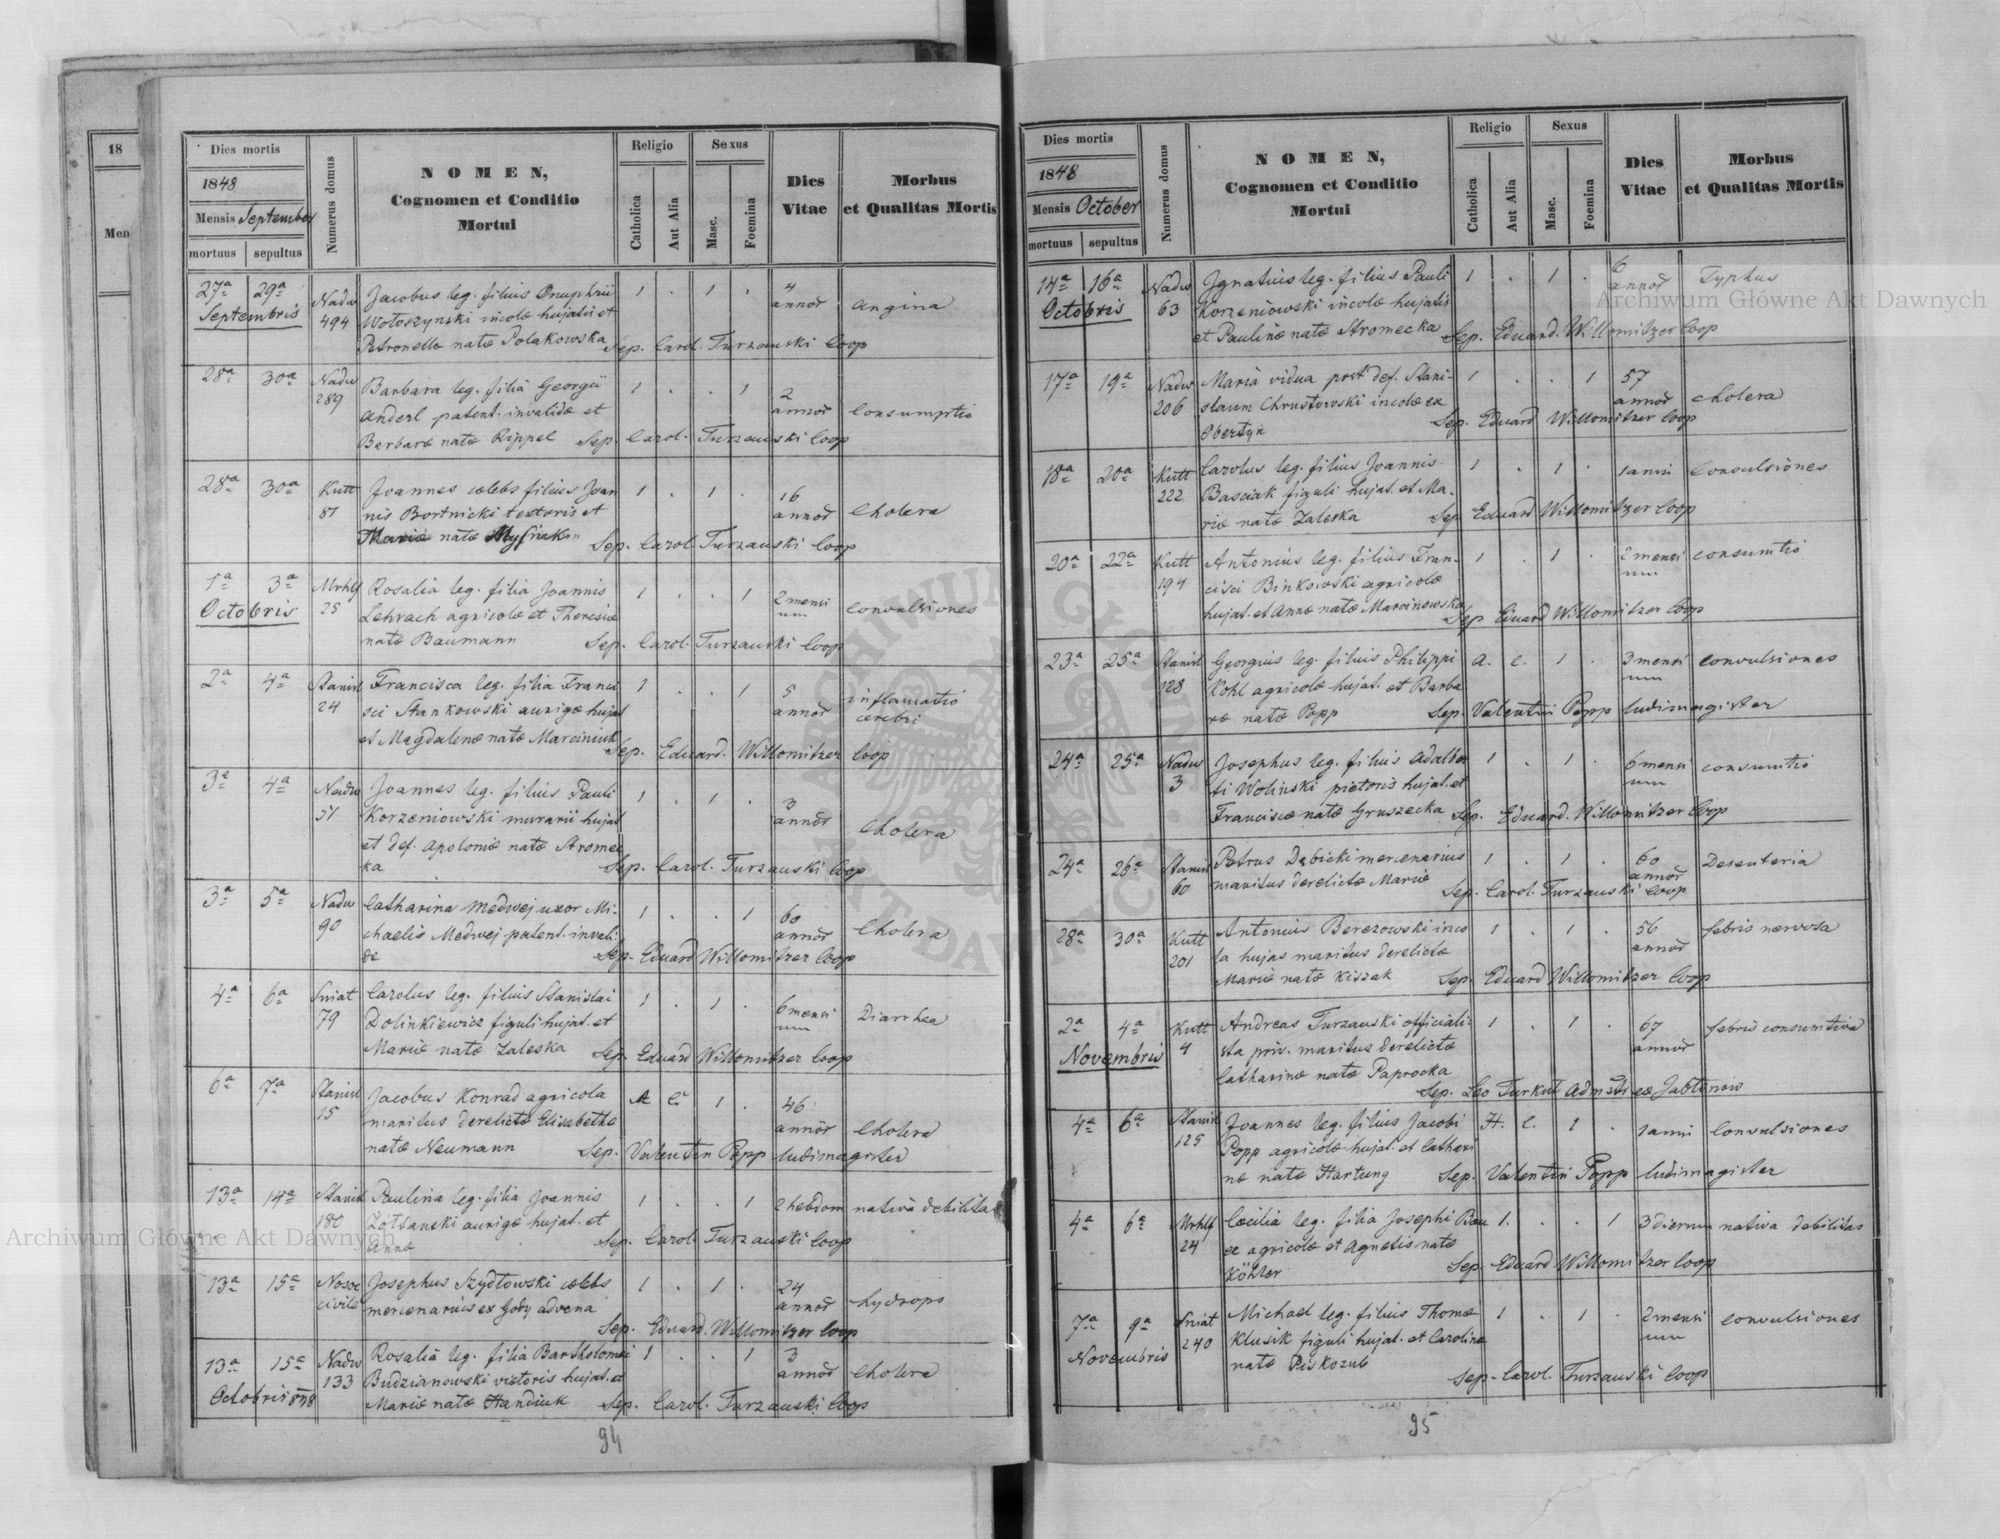 18
Men
Dies mortis
1848
Mensis September
mortuus sepultus
Numerus domus
NOMEN,
Cognomen et Conditio
Mortui
Religio
Catholica
Aut Alia
Sexus
Masc.
Foemina
Dies
Vitae
Morbus
et Qualitas Mortis
27a 29a Nadw Jacobus leg. filius Onuphrii 1 . 1 . 4
Septembris 494 Wołoszynski incolæ hujatis et annor angina
Petronellæ natæ Polakowska Sep. Carol. Turzanski Coop
28a 30a Nadw Barbara leg. filia Georgii 1 . . 1 2
289 Anderl patent. invalidæ et annor Consumptio
Barbaræ natæ Rippel Sep. Carol. Turzanski Coop
28a 30a Kutt Joannes cœlebs filius Joan 1 . 1 . 16
87 nis Bortnicki textoris et annor Cholera
Mariæ natæ Sep. Carol. Turzanski Coop
1a 3a Mrhlf Rosalia leg. filia Joannis 1 . . 1 2 mensi
Octobris 25 Lehrach agricolæ et Theresiæ um convulsiones
natæ Baumann Sep. Carol. Turzanski Coop
2a 4a Stanisl Francisca leg. filia Franci 1 . . 1 5 inflamatio
24 sci Stankowski aurigæ hujat annor cerebri
et Magdalenæ natæ Marciniuk Sep. Eduard. Willomitzer Coop
3a 4a Nadw Joannes leg. filius Pauli 1 . 1 . 3
51 Korzeniowski murarii hujat annor Cholera
et def. Apoloniæ natæ Stromec
ka Sep. Carol. Turzanski Coop
3a 5a Nadw Catharina Medwej uxor Mi- 1 . . 1 60
90 chaelis Medwej patent. invali- annor Cholera
dæ Sep. Eduard Willomitzer Coop
4a 6a Sniat Carolus leg. filius Stanislai 1 . 1 . 6 mensi
79 Dolinkiewicz figuli hujat. et um Diarrhea
Mariæ natæ Zaleska Sep. Eduard Willomitzer Coop
6a 7a Stanisl Jacobus Konrad agricola A C. 1 . 46
15 maritus derelictæ Elisabethæ annor Cholera
natæ Neumann Sep. Valentin Popp ludimagister
13a 14a Stanisl Paulina leg. filia Joannis 1 . . 1 2 hebdom nativa debilitas
180 Żółtanski aurigæ hujat. et
Annæ Sep. Carol. Turzanski Coop
13a 15a Nosoc Josephus Szydłowski cœlebs 1 . 1 . 24
civile mercenarius ex Gody advena annor hydrops
Sep. Eduard. Willomitzer Coop
13a 15a Nadw Rosalia leg. filia Bartholomei 1 . . 1 3
Octobris 848 133 Budzianowski victoris hujat. et annor Cholera
Mariæ natæ Handiuk Sep. Carol. Turzanski Coop
94
Dies mortis
1848
Mensis October
mortuus sepultus
Numerus domus
NOMEN,
Cognomen et Conditio
Mortui
Religio
Catholica
Aut Alia
Sexus
Masc.
Foemina
Dies
Vitae
Morbus
et Qualitas Mortis
14a 16a Nadw Ignatius leg. filius Pauli 1 . 1 . 6 Typhus
Octobris 63 Korzeniowski incolæ hujatis annor
et Paulinæ natæ Stromecka Sep. Eduard. Willomitzer Coop
17a 19a Nadw Maria vidua post def. Stani- 1 . . 1 57
206 slaum Chrustowski incolæ ex annor cholera
Obertyn Sep. Eduard Willomitzer Coop
18a 20a Kutt Carolus leg. filius Joannis 1 . 1 . 1 anni Convulsiones
222 Basciak figuli hujat. et Ma-
riæ natæ Zaleska Sep. Eduard Willomitzer Coop
20a 22a Kutt Antonius leg. filius Fran- 1 . 1 . 2 mensi consumtio
194 cisci Binkowski agricolæ um
hujat. et Annæ natæ Marcinowska Sep. Eduard Willomitzer Coop
23a 25a Stanisl Georgius leg. filius Philippi A. C. 1 . 3 mensi convulsiones
128 Kohl agricolæ hujat. et Barba um
ræ natæ Popp Sep. Valentin Popp ludimagister
24a 25a Nadw Josephus leg. filius Adalber 1 . 1 . 6 mensi consumtio
3 ti Wolinski pictoris hujat. et um
Franciscæ natæ Gruszecka Sep. Eduard. Willomitzer Coop
24a 26a Stanisl Petrus Dąbicki mercenarius 1 . 1 . 60 Desenteria
60 maritus derelictæ Mariæ annor
Sep. Carol. Turzanski Coop
28a 30a Kutt Antonius Berezowski inco 1 . 1 . 56 febris nervosa
201 la hujas maritus derelictæ annor
Mariæ natæ Kiszak Sep. Eduard Willomitzer Coop
2a 4a Kutt Andreas Turzanski officiali- 1 . 1 . 67 febris consumtiva
Novembris 4 sta priv. maritus derelictæ annor
Catharinæ natæ Paprocka
Sep. Leo Turkut Admstr ex Jabłonow
4a 6a Stanisl Joannes leg. filius Jacobi H. C. 1 . 1 anni Convulsiones
125 Popp agricolæ hujat. et Cathari
næ natæ Hartung Sep. Valentin Popp ludimagister
4a 6a Mrhlf Cæcilia leg. filia Josephi Bau 1. . . 1 3 dierum nativa debilitas
24 er agricolæ et Agnetis natæ
Köhler Sep. Eduard Willomitzer Coop
7a 9a Sniat Michael leg. filius Thomæ 1 . 1 . 2 mensi convulsiones
Novembris 240 Klusik figuli hujat. et Carolinæ um
natæ Piskozub
Sep. Carol. Turzanski Coop
95
Archiwum Główne Akt Dawnych
Archiwum Główne Akt Dawnych
ARCHIWUM GŁÓWNE AKT DAWNYCH